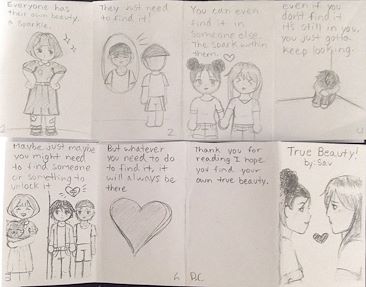 Everyone has
their own beauty.
A Sparkle.
They just need
to find it!
2
You can even
find it in
Someone else.
The spark within
them.
even if you
don't find it
it's still in you,
you just gotta
keep looking.
Maybe just maybe
you might need
to find someone
or something to
unlock it
But whatever
you need to do
to find it, it
will always be
there
Thank you for
reading I hope
you find your
own true beauty.
True Beauty!
by: Sav